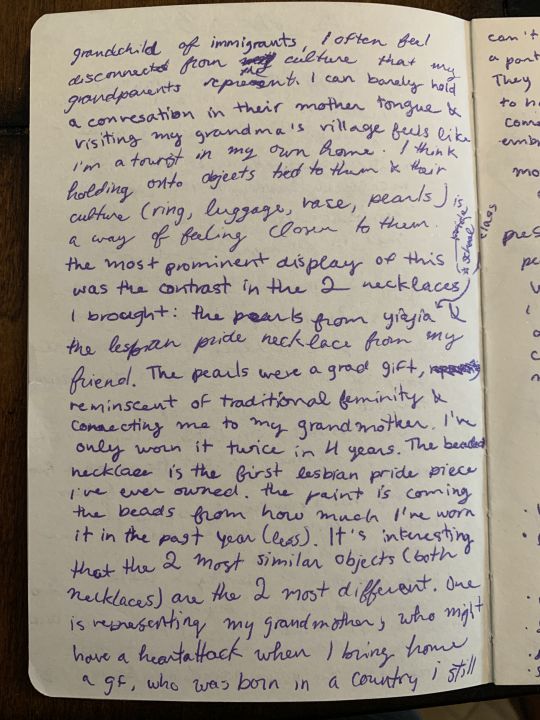 grandchild of immigrants, i often feel
disconnected from the culture that my
grandparents represent. I can barely hold
a convresation in their mother tongue &
visiting my grandma's village feels like
i'm a tourist in my own home. I think
holding onto objects tied to them & their
culture (ring, luggage, vase, pearls) is
a way of feeling closer to them.
the most prominent display of this
was the contrast in the 2 necklaces
I brought: the pearls from yiayia &
the lesbian pride necklace from my
friend. The pearls were a grad gift,
reminscent of traditional feminity &
connecting me to my grandmother. I've
only worn it twice in 4 years. The beaded
necklace is the first lesbian pride piece
i've ever owned. the paint is coming
the beads from how much I've worn
it in the past year (less). It's interesting
that the 2 most similar objects (both
necklaces) are the 2 most different. One
is representing my grandmother, who might
have a heartattack when I bring home
a gf, who was born in a country i still
pride
school
class
can't
a part
They
to h
com
embr
mo
pres
pe